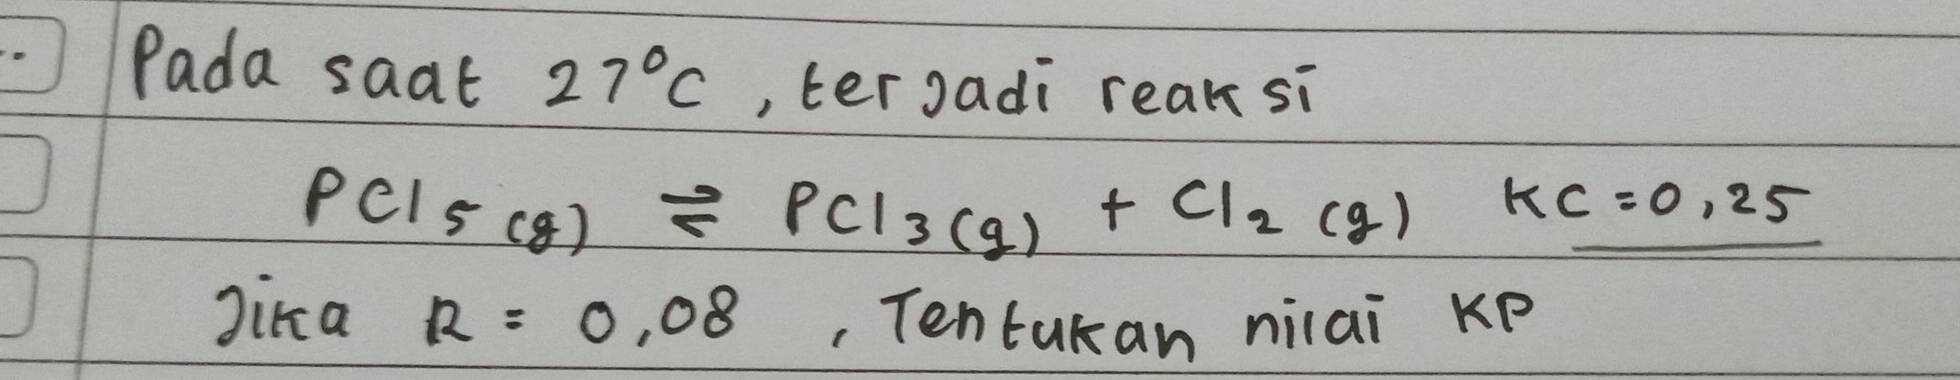 Pada saat 27°C, terjadi reaksi
PCl5 (g) ⇌ PCl3 (g) + Cl2 (g) KC = 0,25
Jika R = 0,08, Tentukan nilai KP